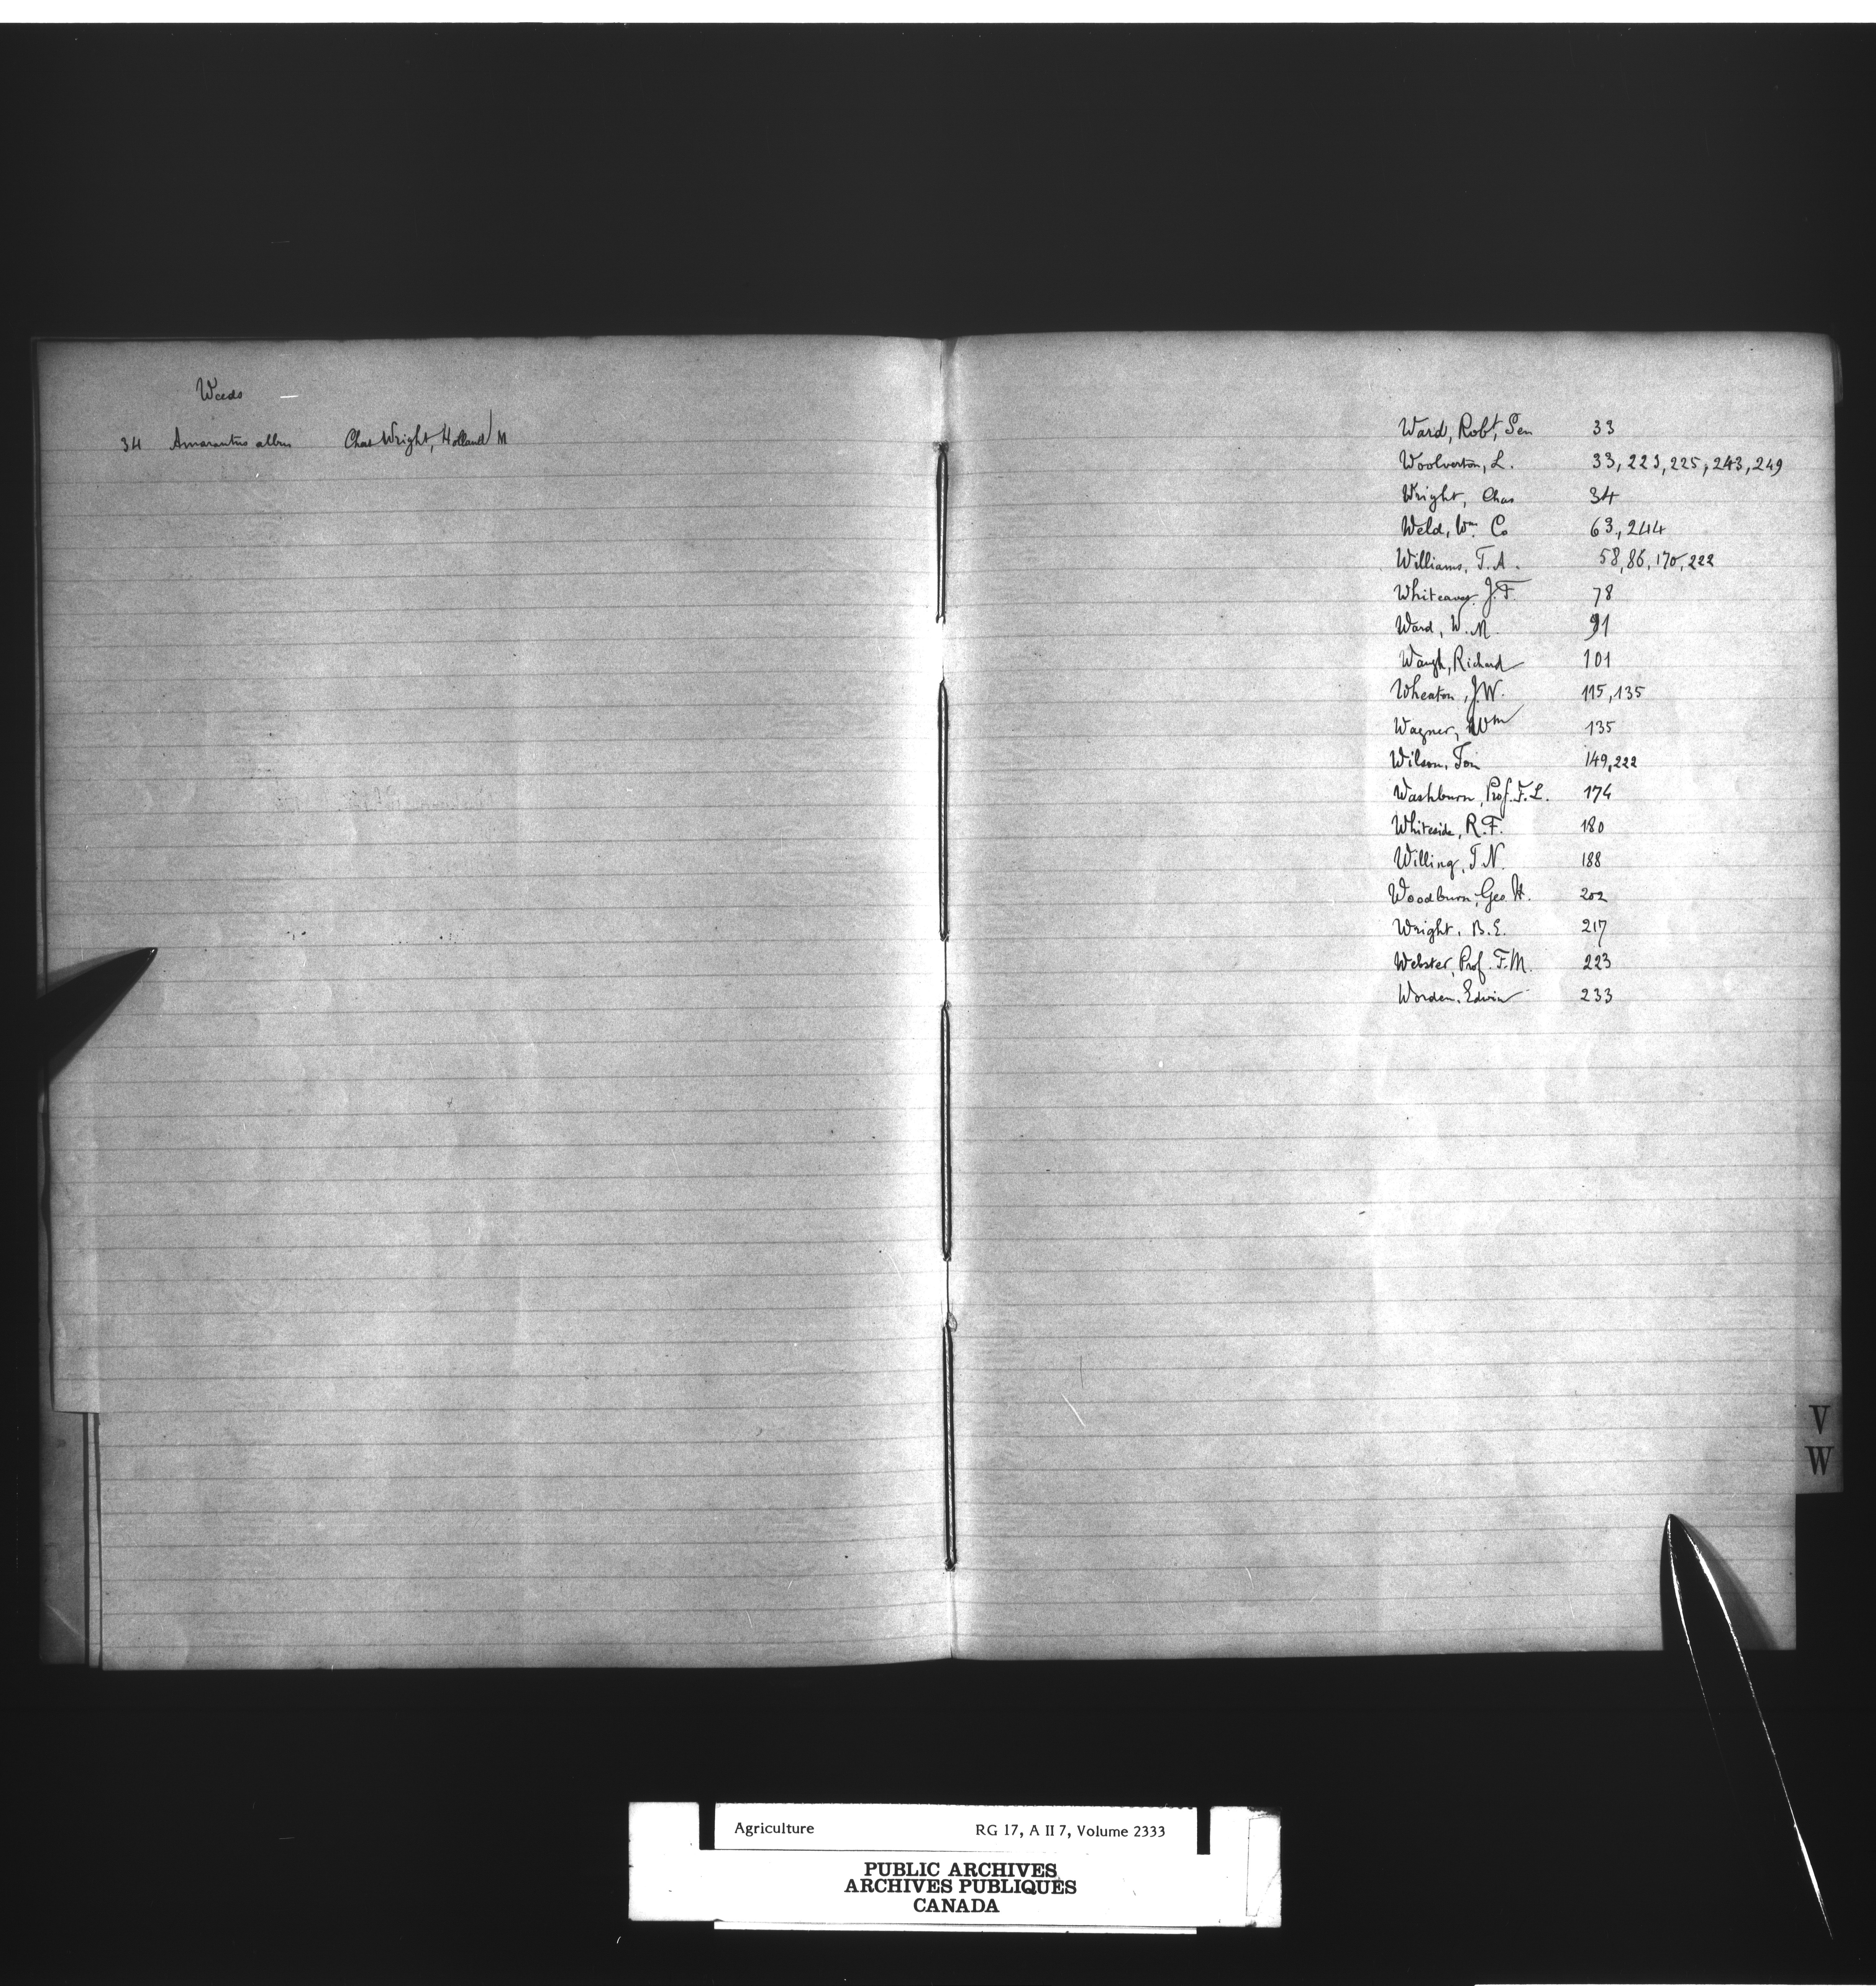 Weeds
34 Amarantus albus Chas Wright, Holland M
Ward, Robt, Sen 33
Woolverton, L. 33, 223, 225, 243, 249
Wright, Chas 34
Weld, Wm Co 63, 244
Williams, T.A. 58, 86, 170, 222
Whiteaves, J.F. 78
Ward, W.M. 91
Waugh, Richard 101
Wheaton, J.W. 115, 135
Wagner, Wm 135
Wilson, Tom 149, 222
Washburn, Prof. F.L. 174
Whiteside, R.F. 180
Willing, T.N. 188
Woodburn, Geo. H. 202
Wright, B.E. 217
Webster, Prof. F.M. 223
Worden, Edwin 233
V
W
Agriculture RG 17, A II 7, Volume 2333
PUBLIC ARCHIVES
ARCHIVES PUBLIQUES
CANADA